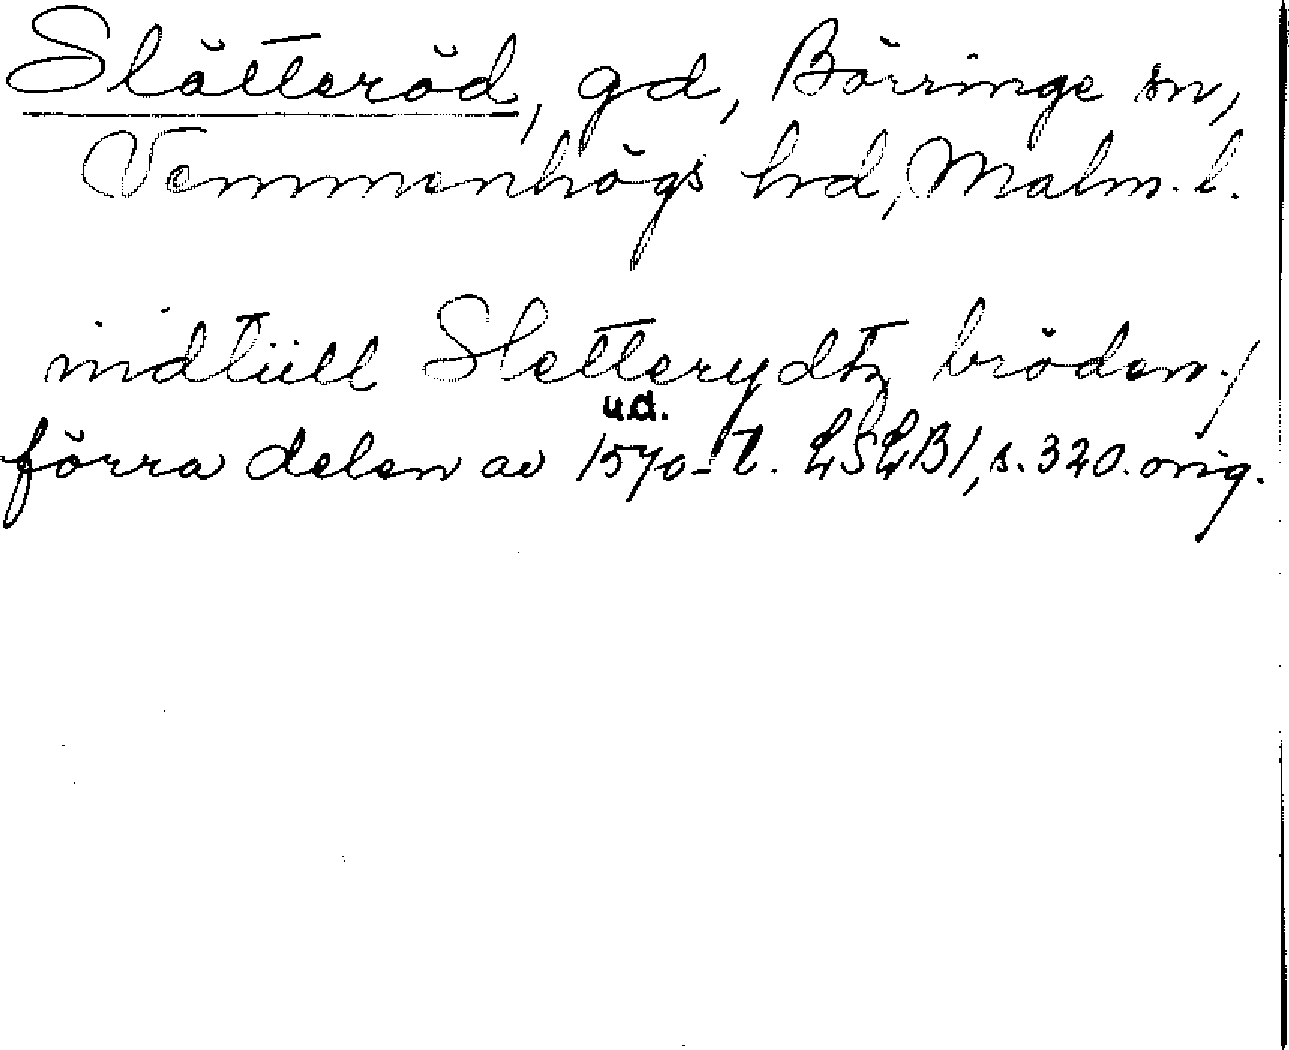 Slätteröd, gd, Börringe sn,
Vemmenhögs hrd, Malm. l.
indtiill Sletterydtz bröden./
u.d.
förra delen av 1570-t. LSLB1, s. 320. orig.